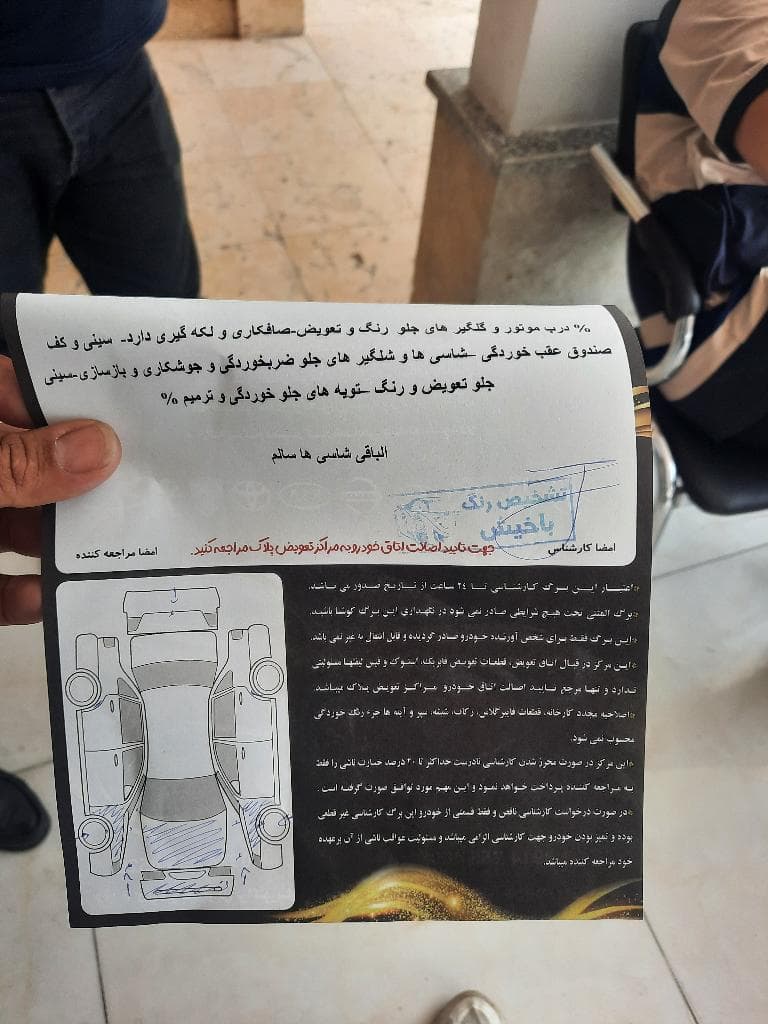 % درب موتور و گلگیر های جلو رنگ و تعویض-صافکاری و لکه گیری دارد- سینی و کف
صندوق عقب خوردگی –شاسی ها و شلگیر های جلو ضربخوردگی و جوشکاری و بازسازی-سینی
جلو تعویض و رنگ –توپه های جلو خوردگی و ترمیم %
الباقی شاسی ها سالم
تشخیص رنگ
باخیش
امضا کارشناس
جهت تایید اصالت اتاق خودرو به مراکز تعویض پلاک مراجعه کنید.
امضا مراجعه کننده
اعتبار این برگ کارشناسی تا ۲۴ ساعت از تاریخ صدور می باشد.
برگ المثنی تحت هیچ شرایطی صادر نمی شود در نگهداری این برگ کوشا باشید.
این برگ فقط برای شخص آورنده خودرو صادر گردیده و قابل انتقال به غیر نمی باشد.
این مرکز در قبال اتاق تعویض، قطعات تعویض فابریک، استوک و فیس لیفتها مسئولیتی
ندارد و تنها مرجع تایید اصالت اتاق خودرو مراکز تعویض پلاک میباشد.
اصلاحیه مجدد کارخانه، قطعات فایبرگلاس، رکاب، شیشه، سپر و آینه ها جزء رنگ خوردگی
محسوب نمی شود.
این مرکز در صورت محرز شدن کارشناسی نادرست حداکثر تا ۲۰ درصد خسارت ناشی را فقط
به مراجعه کننده پرداخت خواهد نمود و این مهم مورد توافق صورت گرفته است.
در صورت درخواست کارشناسی ناقص و فقط قسمتی از خودرو این برگ کارشناسی غیر قطعی
بوده و تمیز بودن خودرو جهت کارشناسی الزامی میباشد و مسئولیت عواقب ناشی از آن برعهده
خود مراجعه کننده میباشد.